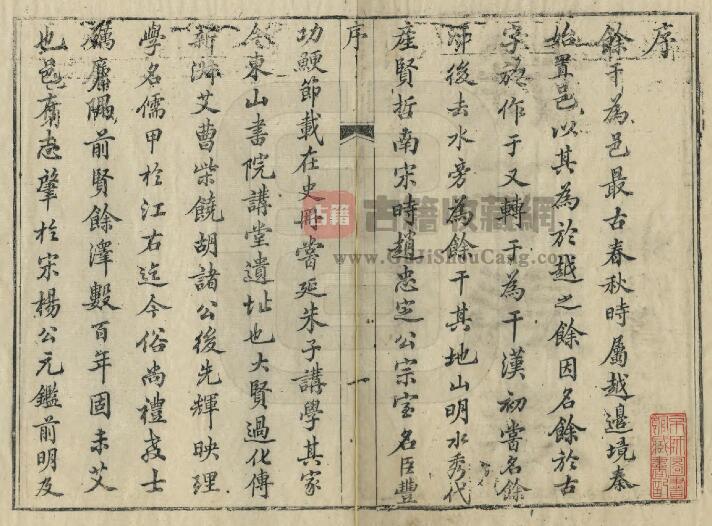 序
餘干為邑最古春秋時屬越邊境秦
始置邑以其為於越之餘因名餘於古
字於作于又轉于為干漢初嘗名餘
汗後去水旁為餘干其地山明水秀代
產賢哲南宋時趙忠定公宗室名臣豐
序
一
功鯁節載在史冊嘗延朱子講學其家
今東山書院講堂遺址也大賢過化傳
新淑艾曹柴饒胡諸公後先輝映理
學名儒甲於江右迄今俗尚禮教士
礪廉隅前賢餘澤數百年固未艾
也邑有志肇於宋楊公元鑑前明及
古籍
古籍收藏網
www.GuJiShouCang.com